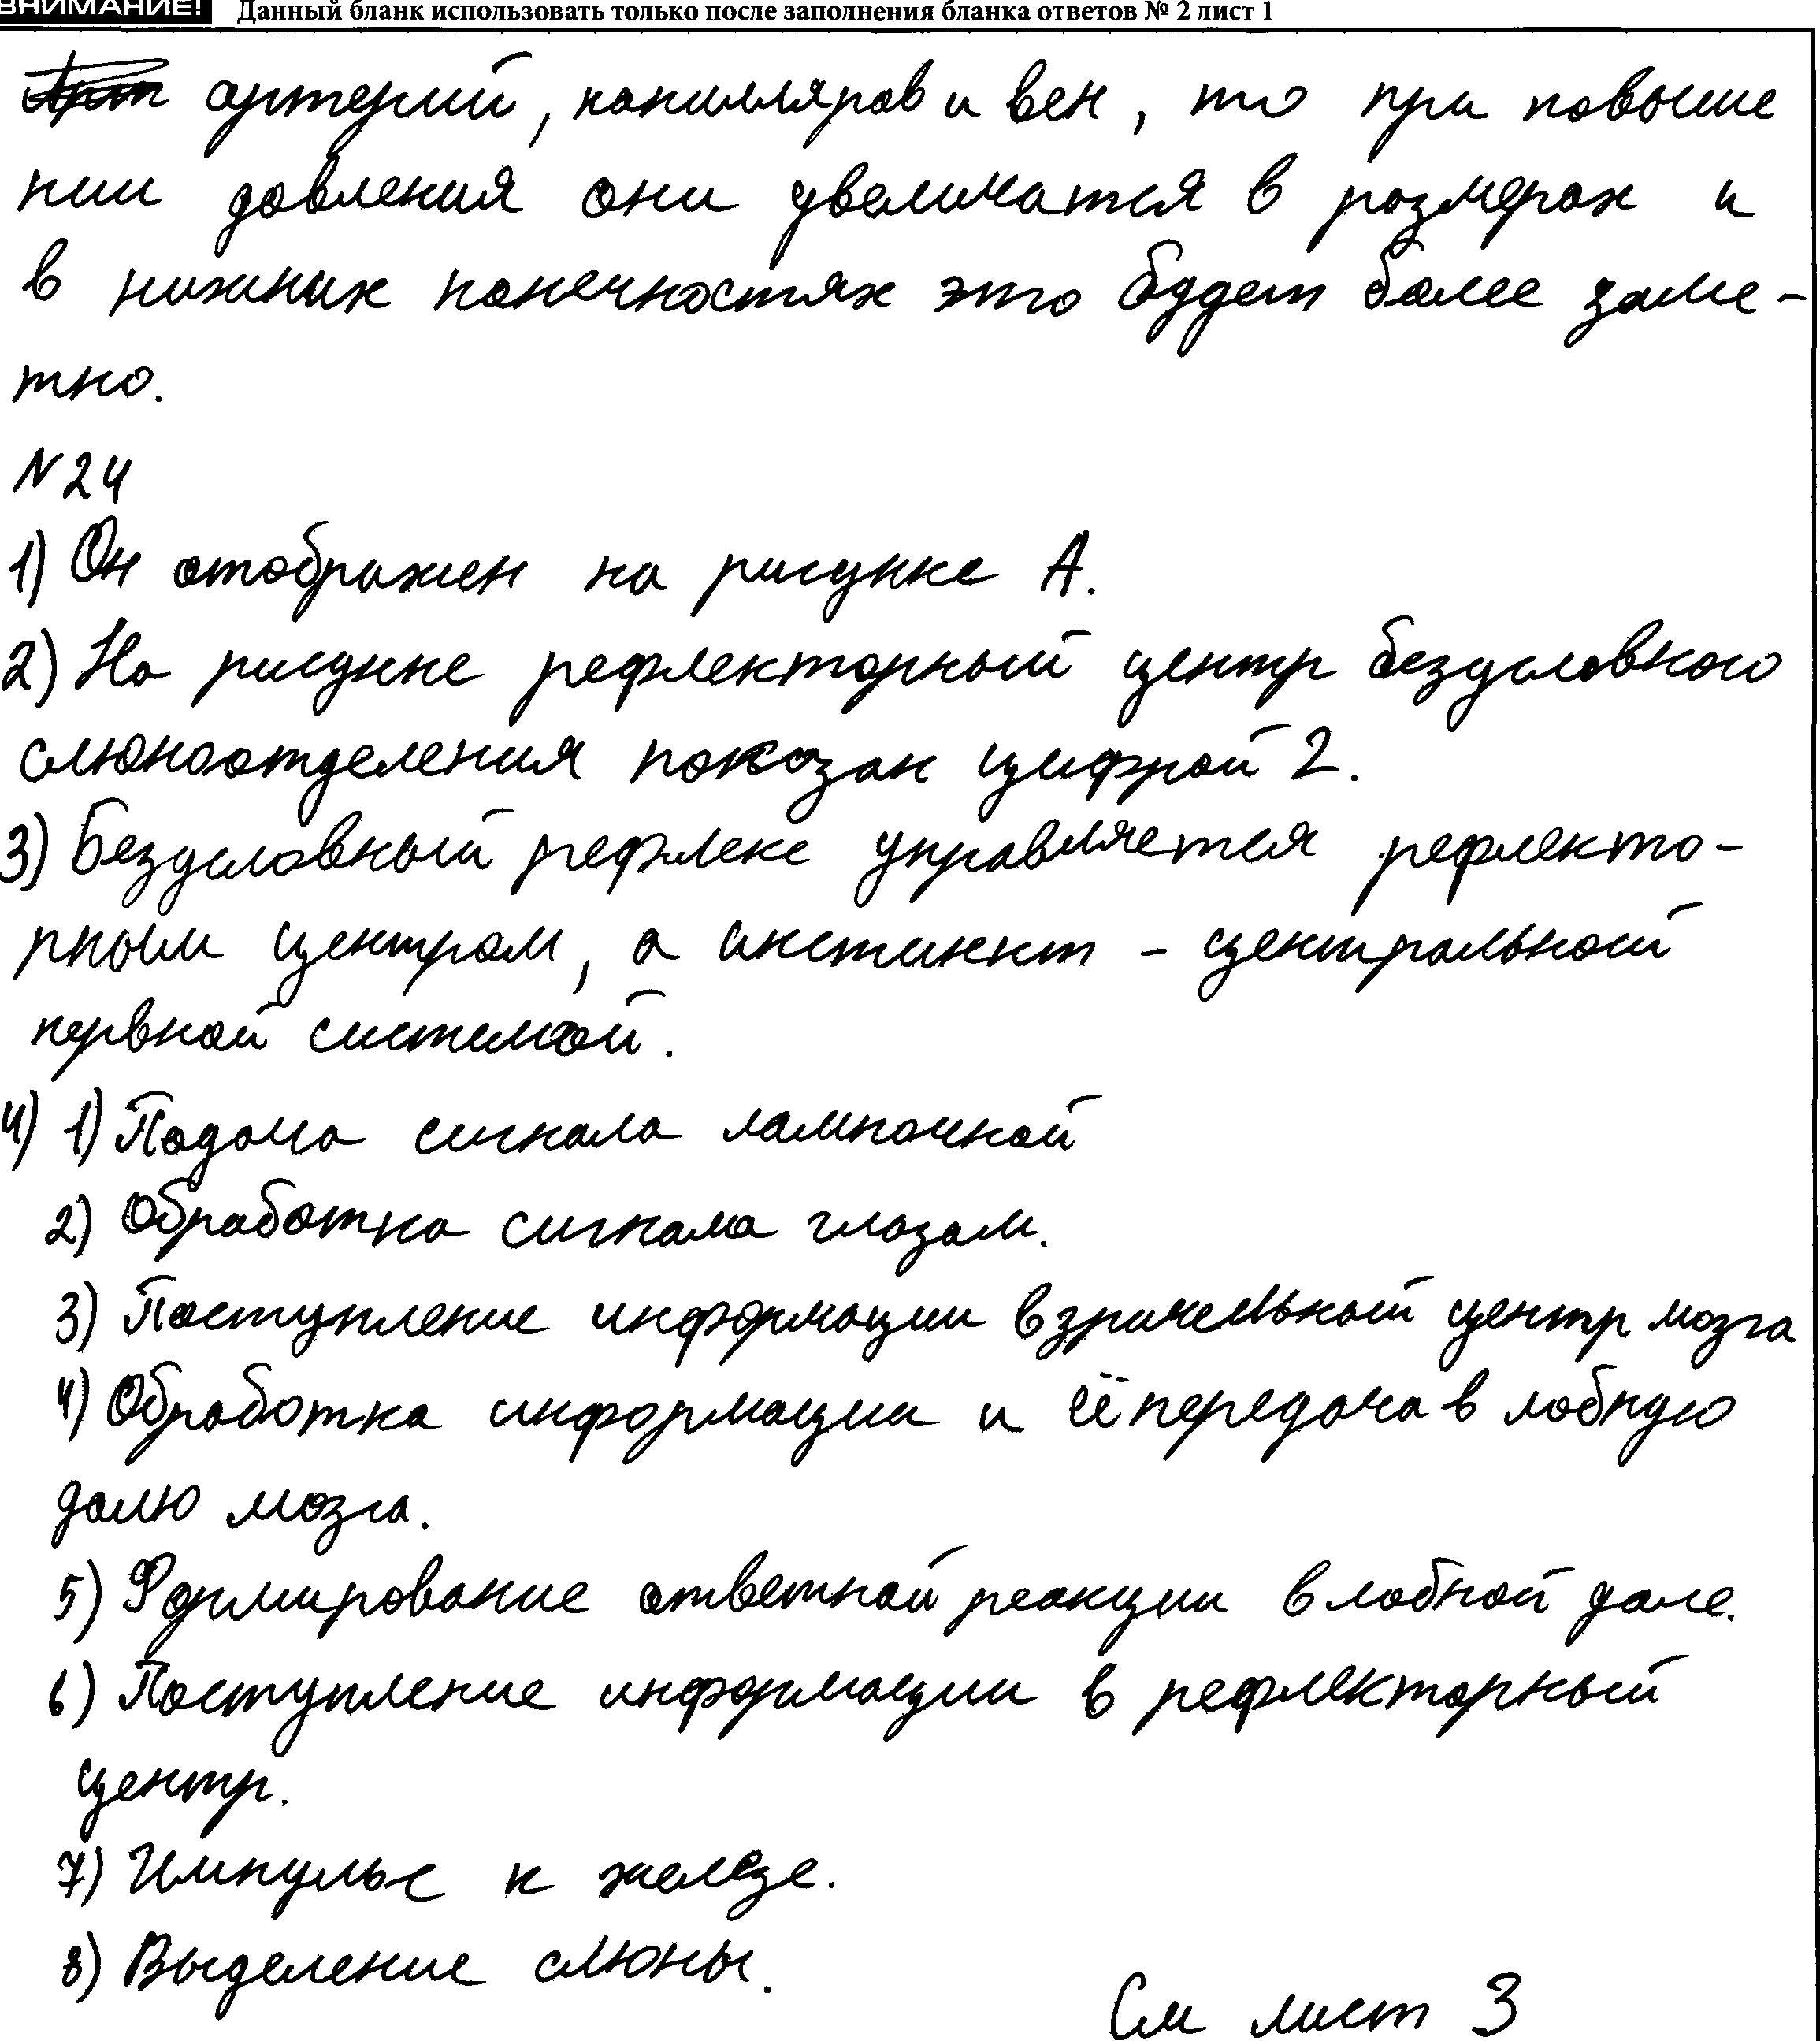 ВНИМАНИЕ! Данный бланк использовать только после заполнения бланка ответов № 2 лист 1
артерий, капилляров и вен, то при повыше
нии давления они увеличатся в размерах и
в нижних конечностях это будет более заме-
тно.
N24
1) Он отображен на рисунке А.
2) На рисунке рефлекторный центр безусловного
слюноотделения показан цифрой 2.
3) Безусловный рефлекс управляется рефлекто-
рным центром, а инстинкт - центральной
нервной системой.
4) 1) Подача сигнала лампочкой
2) Обработка сигнала глазам.
3) Поступление информации в зрительный центр мозга
4) Обработка информации и её передача в лобную
долю мозга.
5) Формирование ответной реакции в лобной доле.
6) Поступление информации в рефлекторный
центр.
7) Импульс к железе.
8) Выделение слюны.
См лист 3